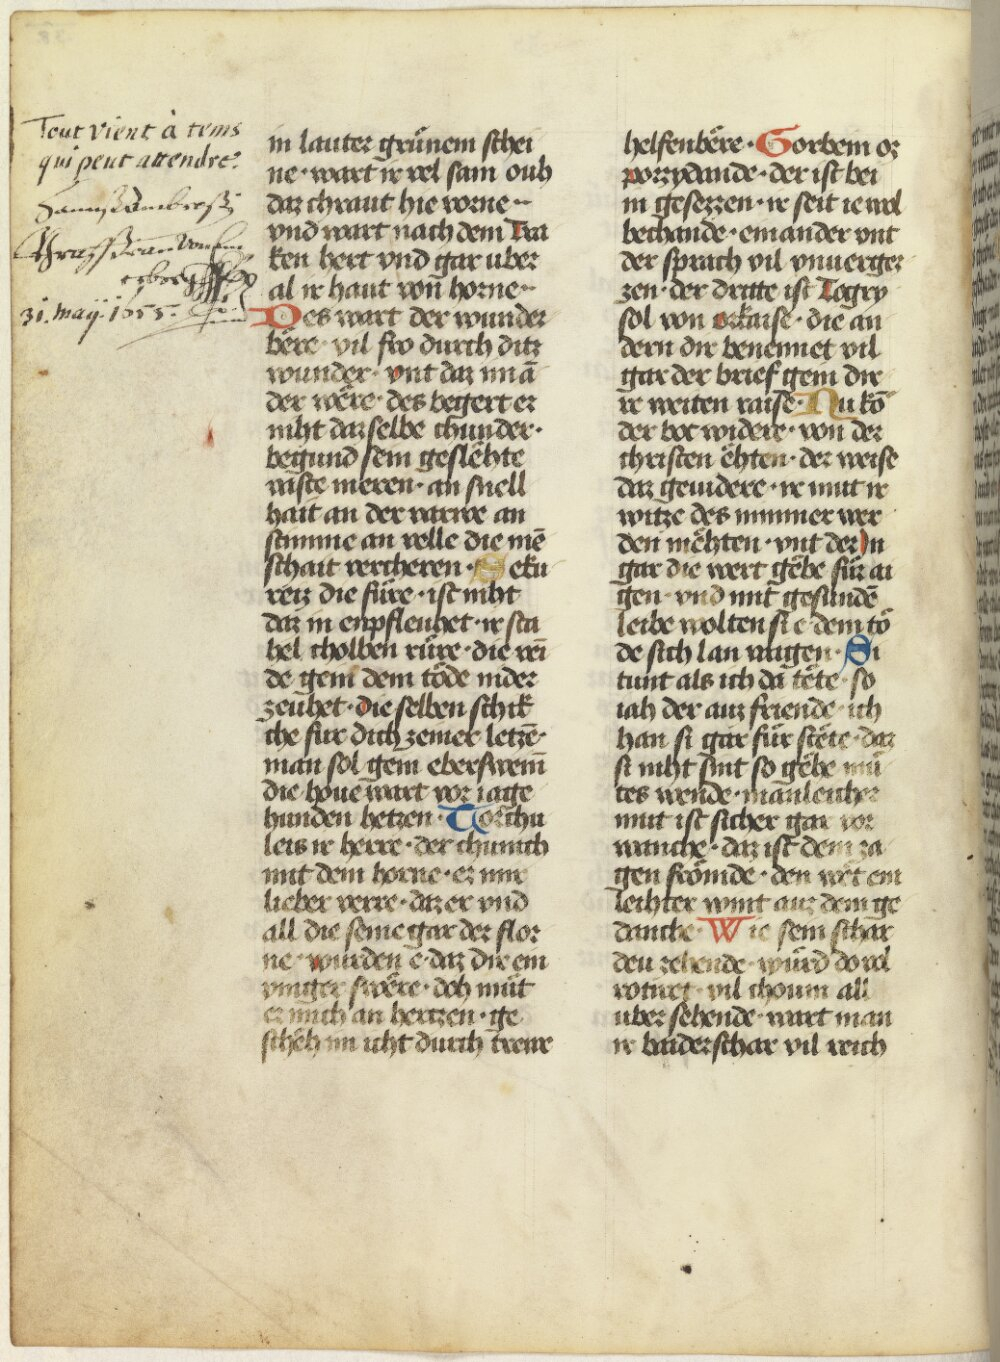 Tout vient à tems
qui peut attendre.
31. may. 1655.
in lauter grůnem schei
ne · wart ir vel sam ouh
daz chraut hie vorne ··
vnd wart nach dem Tra
ken hert vnd gar uber
al ir haut von̄ horne ··
Des wart der wunder
bëre · vil fro durch ditz
wunder · vnt daz im ā
der wëre · des begert er
niht daz selbe chunder ·
begund sein geslëhte
vaste meren · an snell
hait an der varwe an
stimme an velle die mē
schait vercheren · Seku
reiz die fůre · ist niht
daz in enpfleuhet · ir sta
hel cholben růre · die vei
de gein dem tôde nider
zeuhet · die selben schik
che fur dich ze mer letze ·
man sol gein eberswein̄
die houe wart vor iage
hunden hetzen · Torchu
leis ir herre · der chumch
mit dem horne · er mir
lieber verre · daz er vnd
all die seine gar der flor
ne · wurden e · daz dir ein
vniger swëre · doh můt
ez mich an hertzen · ge
schëh im icht durch trewe
helfenbëre · Gorhein oz
porzydande · der ist bei
in gesezzen · ir seit ie wol
bechande · einander vnt
der sprach vil vnuerger
zen · der dritte ist Togry
sol von orkaise · die an
dern dir benennet vil
gar der brief gein dir
re weiten raise · Nu kō
der bot widere · von der
christen ëhten · der weise
daz geuidere · ir mut ir
witze des nimmer wer
den mëhten · vnt der in
gar die wert gëbe fůr ai
gen · vnd mit gesundē
leibe wolten si e dem tô
de sich lan vaigen · Si
tunt als ich da tëte · so
iah der auz friende · ich
han si gar fůr stëte · daz
si niht sint so gëbe mů
tes wende · manleicher
mut ist sicher gar vor
wanche · daz ist dem za
gen frômde · den wët ein
leihter wint auz dem ge
danche · Wie sein schar
deu zehende · wurd do wol
rotiret · vil choum all
uber sehende · wart man
ir baider schar vil reich